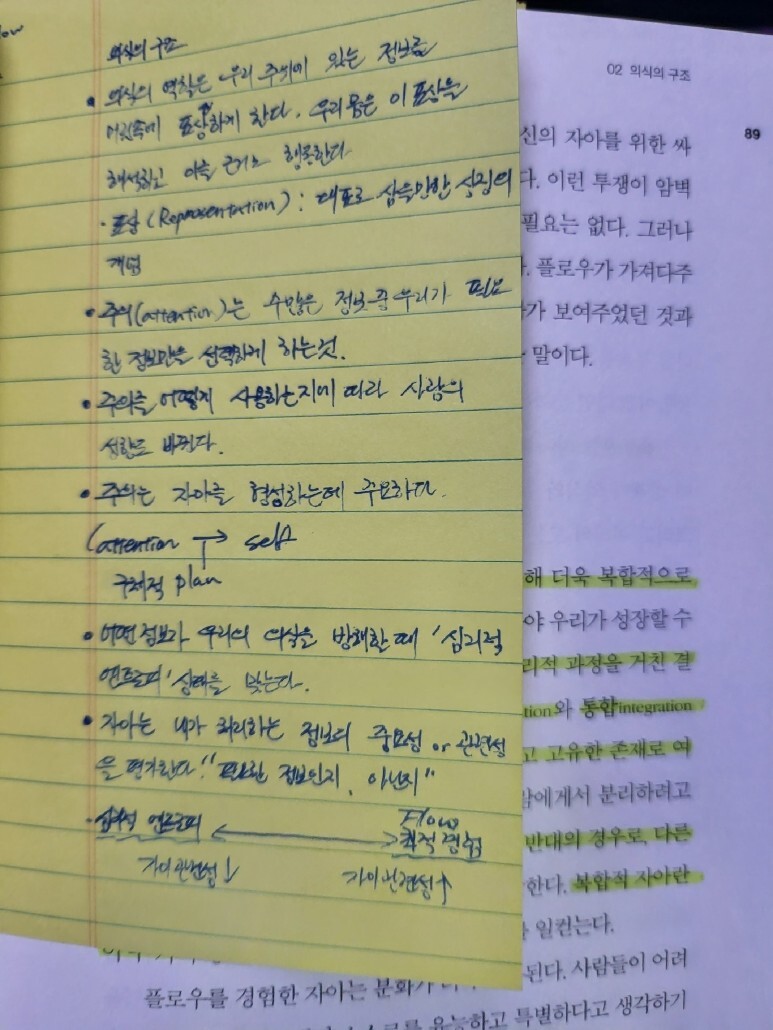 low
의식의 구조
• 의식의 역할은 우리 주위에 있는 정보를
머릿속에 표상하게 한다. 우리 몸은 이 표상을
해석하고 이를 근거로 행동한다
· 표상 (Representation) : 대표로 삼을만한 상징의
개념
• 주의(attention)는 수많은 정보중 우리가 필요
한 정보만을 선택하게 하는것.
• 주의를 어떻게 사용하는지에 따라 사람의
성향도 바뀐다.
• 주의는 자아를 형성하는데 주요하다.
(attention → self
구체적 plan
• 어떤 정보가 우리의 의식을 방해할 때 '심리적
엔트로피' 상태를 맞는다.
• 자아는 내가 처리하는 정보의 중요성 or 관련성
을 평가한다. "필요한 정보인지, 아닌지"
· 심리적 엔트로피 ↔ Flow 최적경험
자아관련성↓ 자아관련성↑
02 의식의 구조
89
신의 자아를 위한 싸
다. 이런 투쟁이 암벽
필요는 없다. 그러나
. 플로우가 가져다주
가 보여주었던 것과
말이다.
해 더욱 복합적으로
야 우리가 성장할 수
리적 과정을 거친 결
tion와 통합integration
고 고유한 존재로 여
람에게서 분리하려고
반대의 경우로, 다른
한다. 복합적 자아란
일컫는다.
된다. 사람들이 어려
플로우를 경험한 자아는 분화가
를 유능하고 특별하다고 생각하기